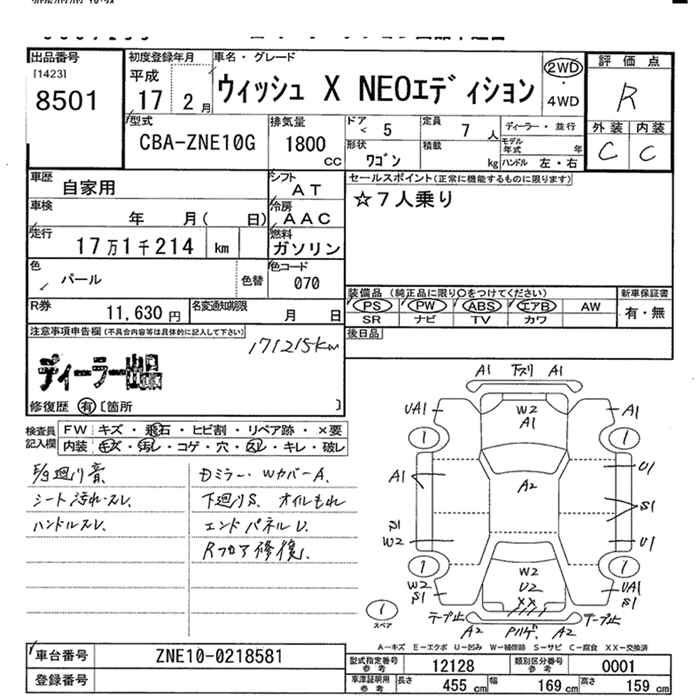 出品番号
[1423]
8501
初度登録年月
平成
17 2月
車名・グレード
ウィッシュ X NEOエディション
2WD
・
4WD
評価点
R
外装 内装
C C
型式
CBA-ZNE10G
排気量
1800
CC
ドア 5
形状 ワゴン
定員 7人
積載 kg
ディーラー・並行
モデル年式 年
ハンドル 左・右
車歴 自家用
シフト AT
車検 年 月( 日)
冷房 AAC
走行 17万1千214 km
燃料 ガソリン
色 パール
色替
色コード 070
R券 11,630円
名変通知期限 月 日
セールスポイント(正常に機能するものに限ります)
☆7人乗り
装備品 (純正品に限り○をつけてください)
新車保証書
PS PW ABS エアB AW
SR ナビ TV カワ
有・無
後日品
注意事項申告欄(不具合内容等は具体的に記入して下さい)
171215km
ディーラー出品
修復歴 有 [箇所 ]
検査員記入欄
FW キズ・飛石・ヒビ割・リペア跡・×要
内装 キズ・汚レ・コゲ・穴・スレ・キレ・破レ
シート汚れ・スレ
ハンドルスレ
Dミラー・WカバーA.
下廻りS. オイルもれ
エンドパネルU.
Rフロア修復.
A1 下スリ A1
UA1 W2 A1 A1
1 1
A1 A2 U1
S1
S1
W2 U1
1 W2 1
W2 U2 UA1
S1 XX S1
テープ止 テープ止
A2 A2
1
スペア
A－キズ E－エクボ U－凹み W－補修跡 S－サビ C－腐食 XX－交換済
車台番号 ZNE10-0218581
登録番号
型式指定番号 参考 12128
類別区分番号 参考 0001
車庫証明用 参考 長さ 455 cm 幅 169 cm 高さ 159 cm